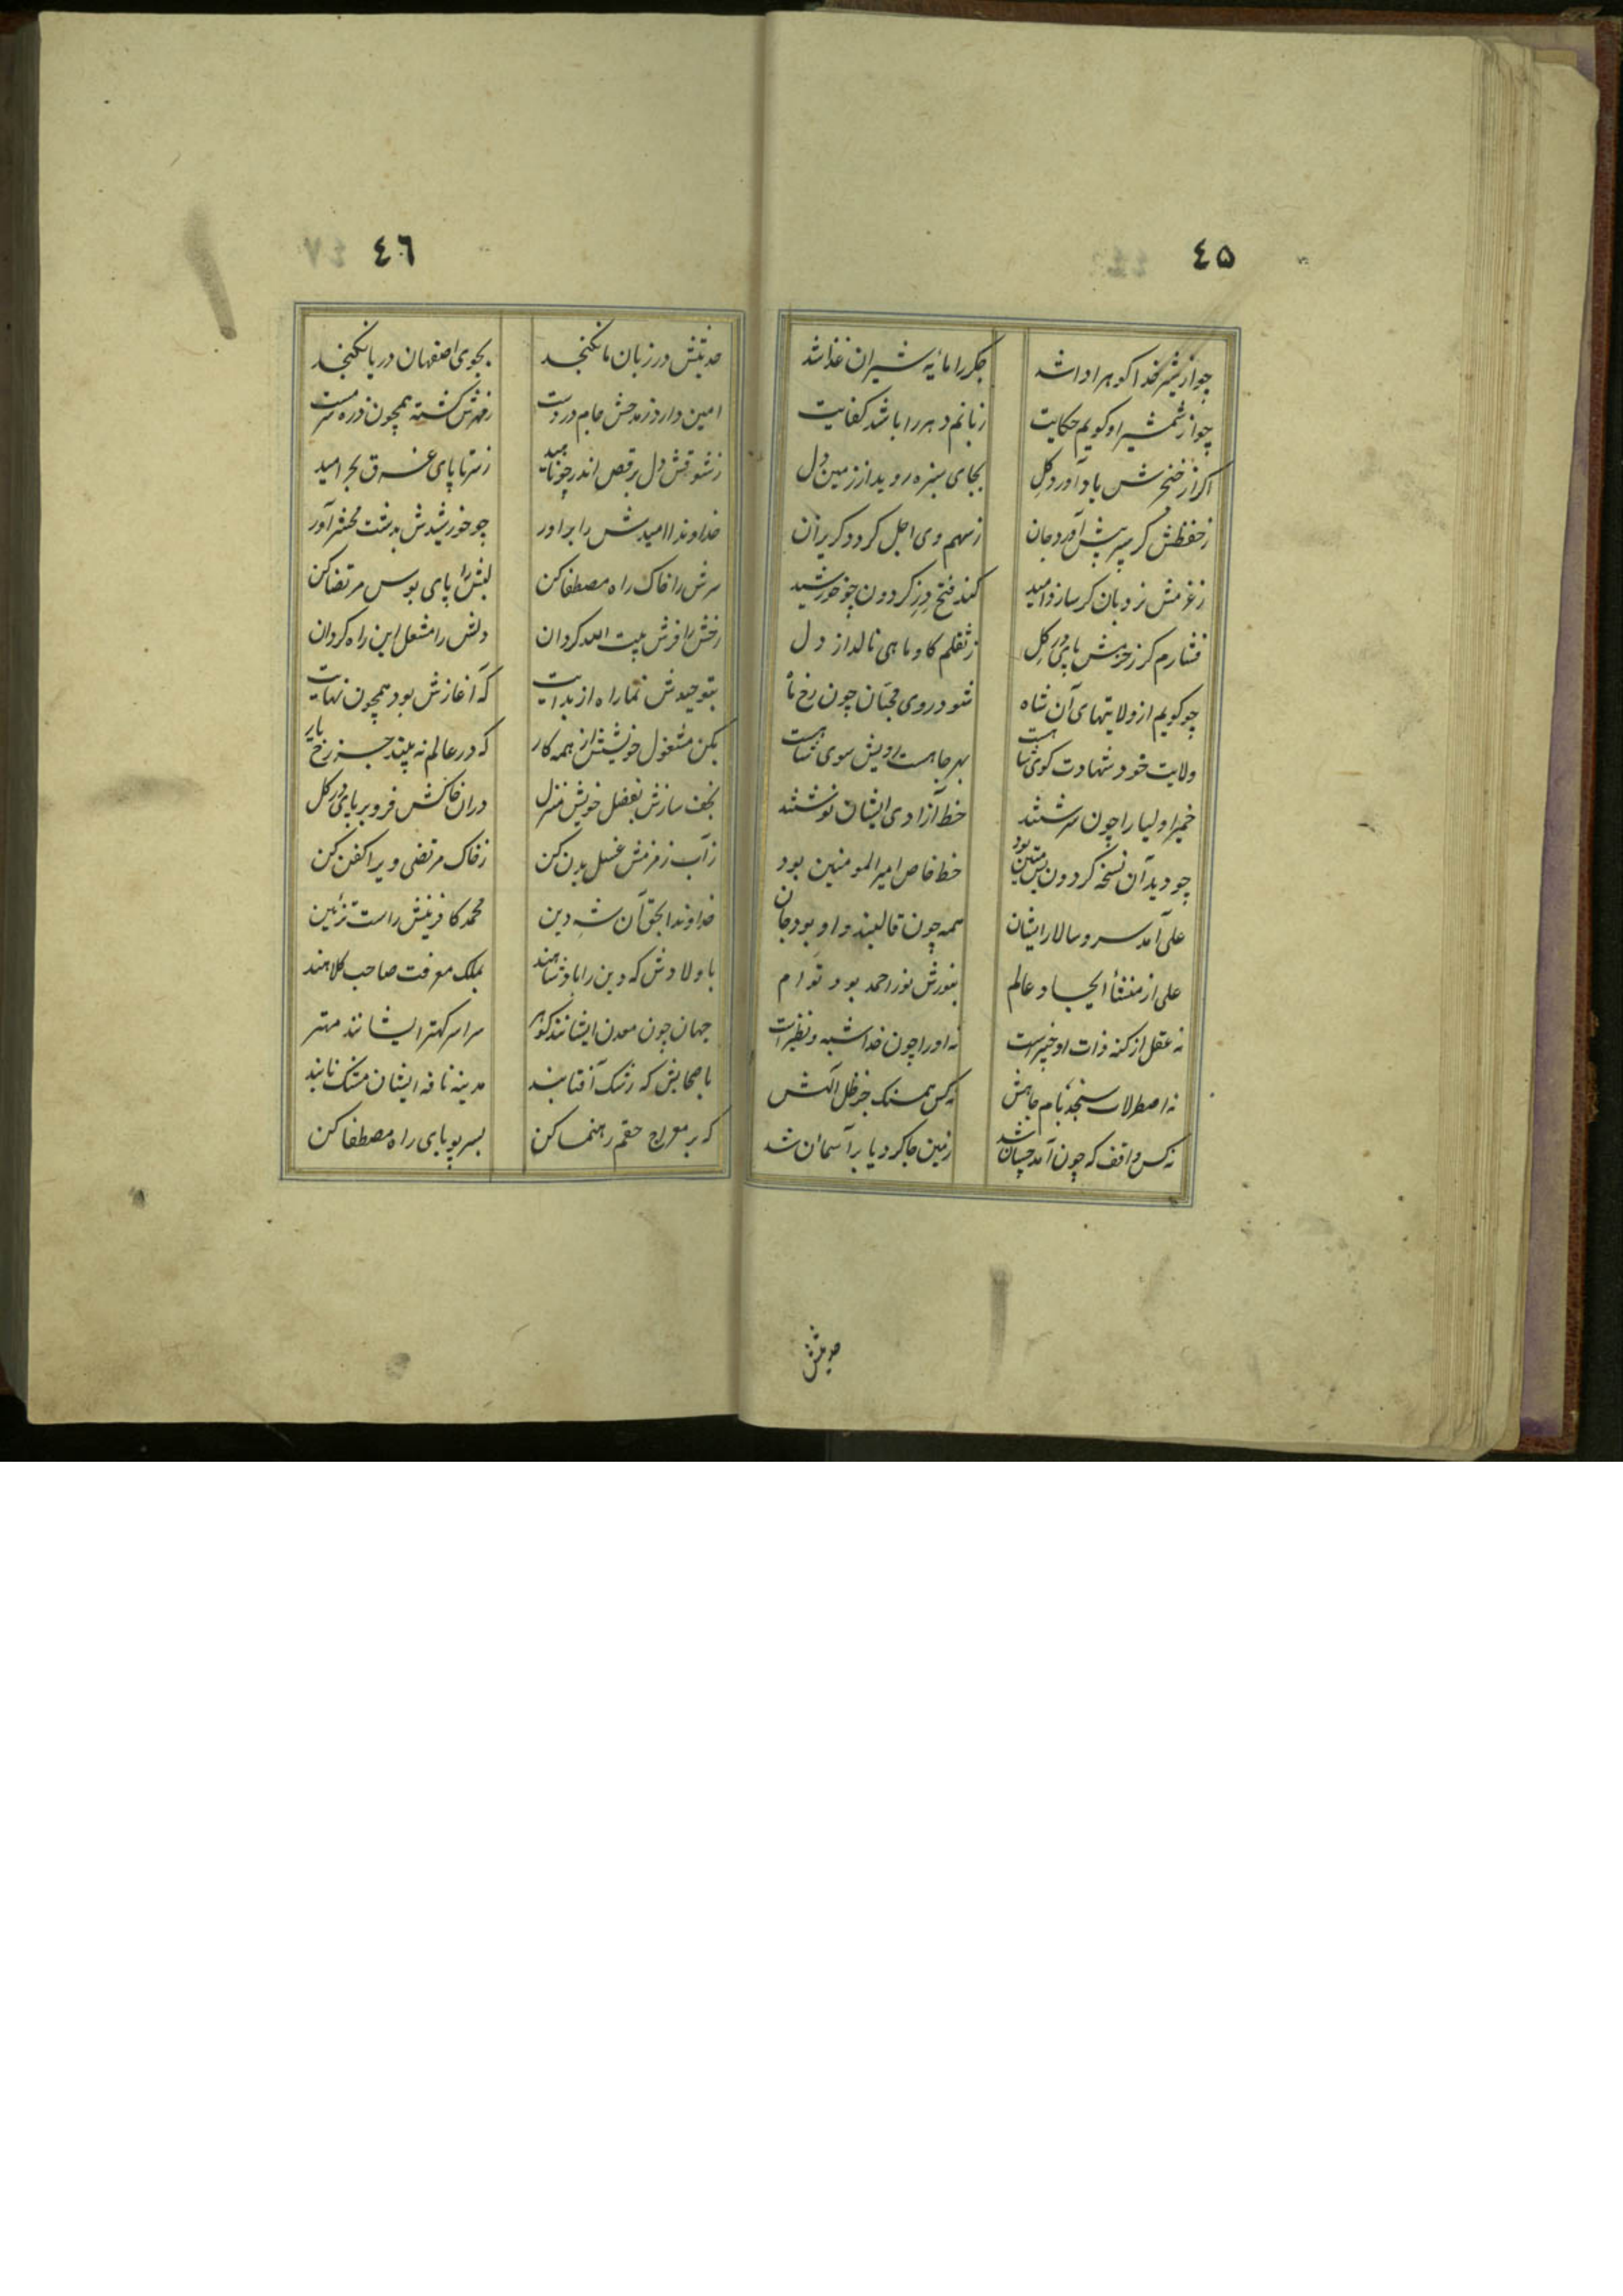 ٤٥
چو از شیر خدا گوهر ادا شد
جگر را مایه شیران غذا شد
چو از شمشیر او گویم حکایت
زبانم دهر را باشد کفایت
اگر از خنجرش یاد آورد گل
بجای سبزه روید از زمین دل
ز حفظش گر سپر پیش آورد جان
ز سهم وی اجل گردد گریزان
ز عزمش نردبان گر سازد امید
کند فتح دز گردون چو خورشید
فشارم گر ز حزمش پای در گل
ز ثقلم گاو ماهی نالد از دل
چو گویم از ولایتهای آن شاه
شود روی محبّان چون رخ ماه
ولایت خود شهادت گوی شاهست
بهر جا هست رویش سوی شاهست
خمیر اولیا را چون سرشتند
خط آزادی ایشان نوشتند
چو دید آن نسخه گردون
خط خاص امیر المومنین بود
علی آمد سر و سالار ایشان
همه چون قالبند و او بود جان
علی از منشأ ایجاد عالم
بنورش نور احمد بود توام
نه عقل از کنه ذات او خبیرست
نه او را چون خدا شبه و نظیرست
نه اصطرلاب سنجد بام جاهش
نه کس همسنک جز ظل الهش
نه کس واقف که چون آمد چسان شد
زمین جا کرد یا بر آسمان شد
حدیثش
٤٦
حدیثش در زبان ما نگنجد
بجوی اصفهان دریا نگنجد
امین دارد ز مدحش جام در دست
ز مهرش گشته همچون ذره سرمست
ز شوقش دل برقص اندر چو ناهید
ز سر تا پای غرق بحر امید
خداوندا امیدش را بر آور
چو خورشیدش بدشت محشر آور
سرش را خاک راه مصطفا کن
لبش را پای بوس مرتضا کن
رخش را فرش بیت الله گردان
دلش را مشعل این راه گردان
بتوحیدش نما راه از بدایت
که آغازش بود همچون نهایت
بکن مشغول خویشش از همه کار
که در عالم نه بیند جز رخ یار
نجف سازش بفضل خویش منزل
در آن خاکش فرو بر پای در گل
ز آب زمزمش غسل بدن کن
ز خاک مرتضی ویرا کفن کن
خداوندا بحق آن شه دین
محمد کافرینش راست تزئین
باولادش که دین را پادشاهند
بملک معرفت صاحب کلاهند
جهان چون معدن ایشانند گوهر
سراسر کهتر ایشانند مهتر
باصحابش که رشک آفتابند
مدینه نافه ایشان مشک نابند
که بر معراج حقم رهنما کن
بسر پویای راه مصطفا کن